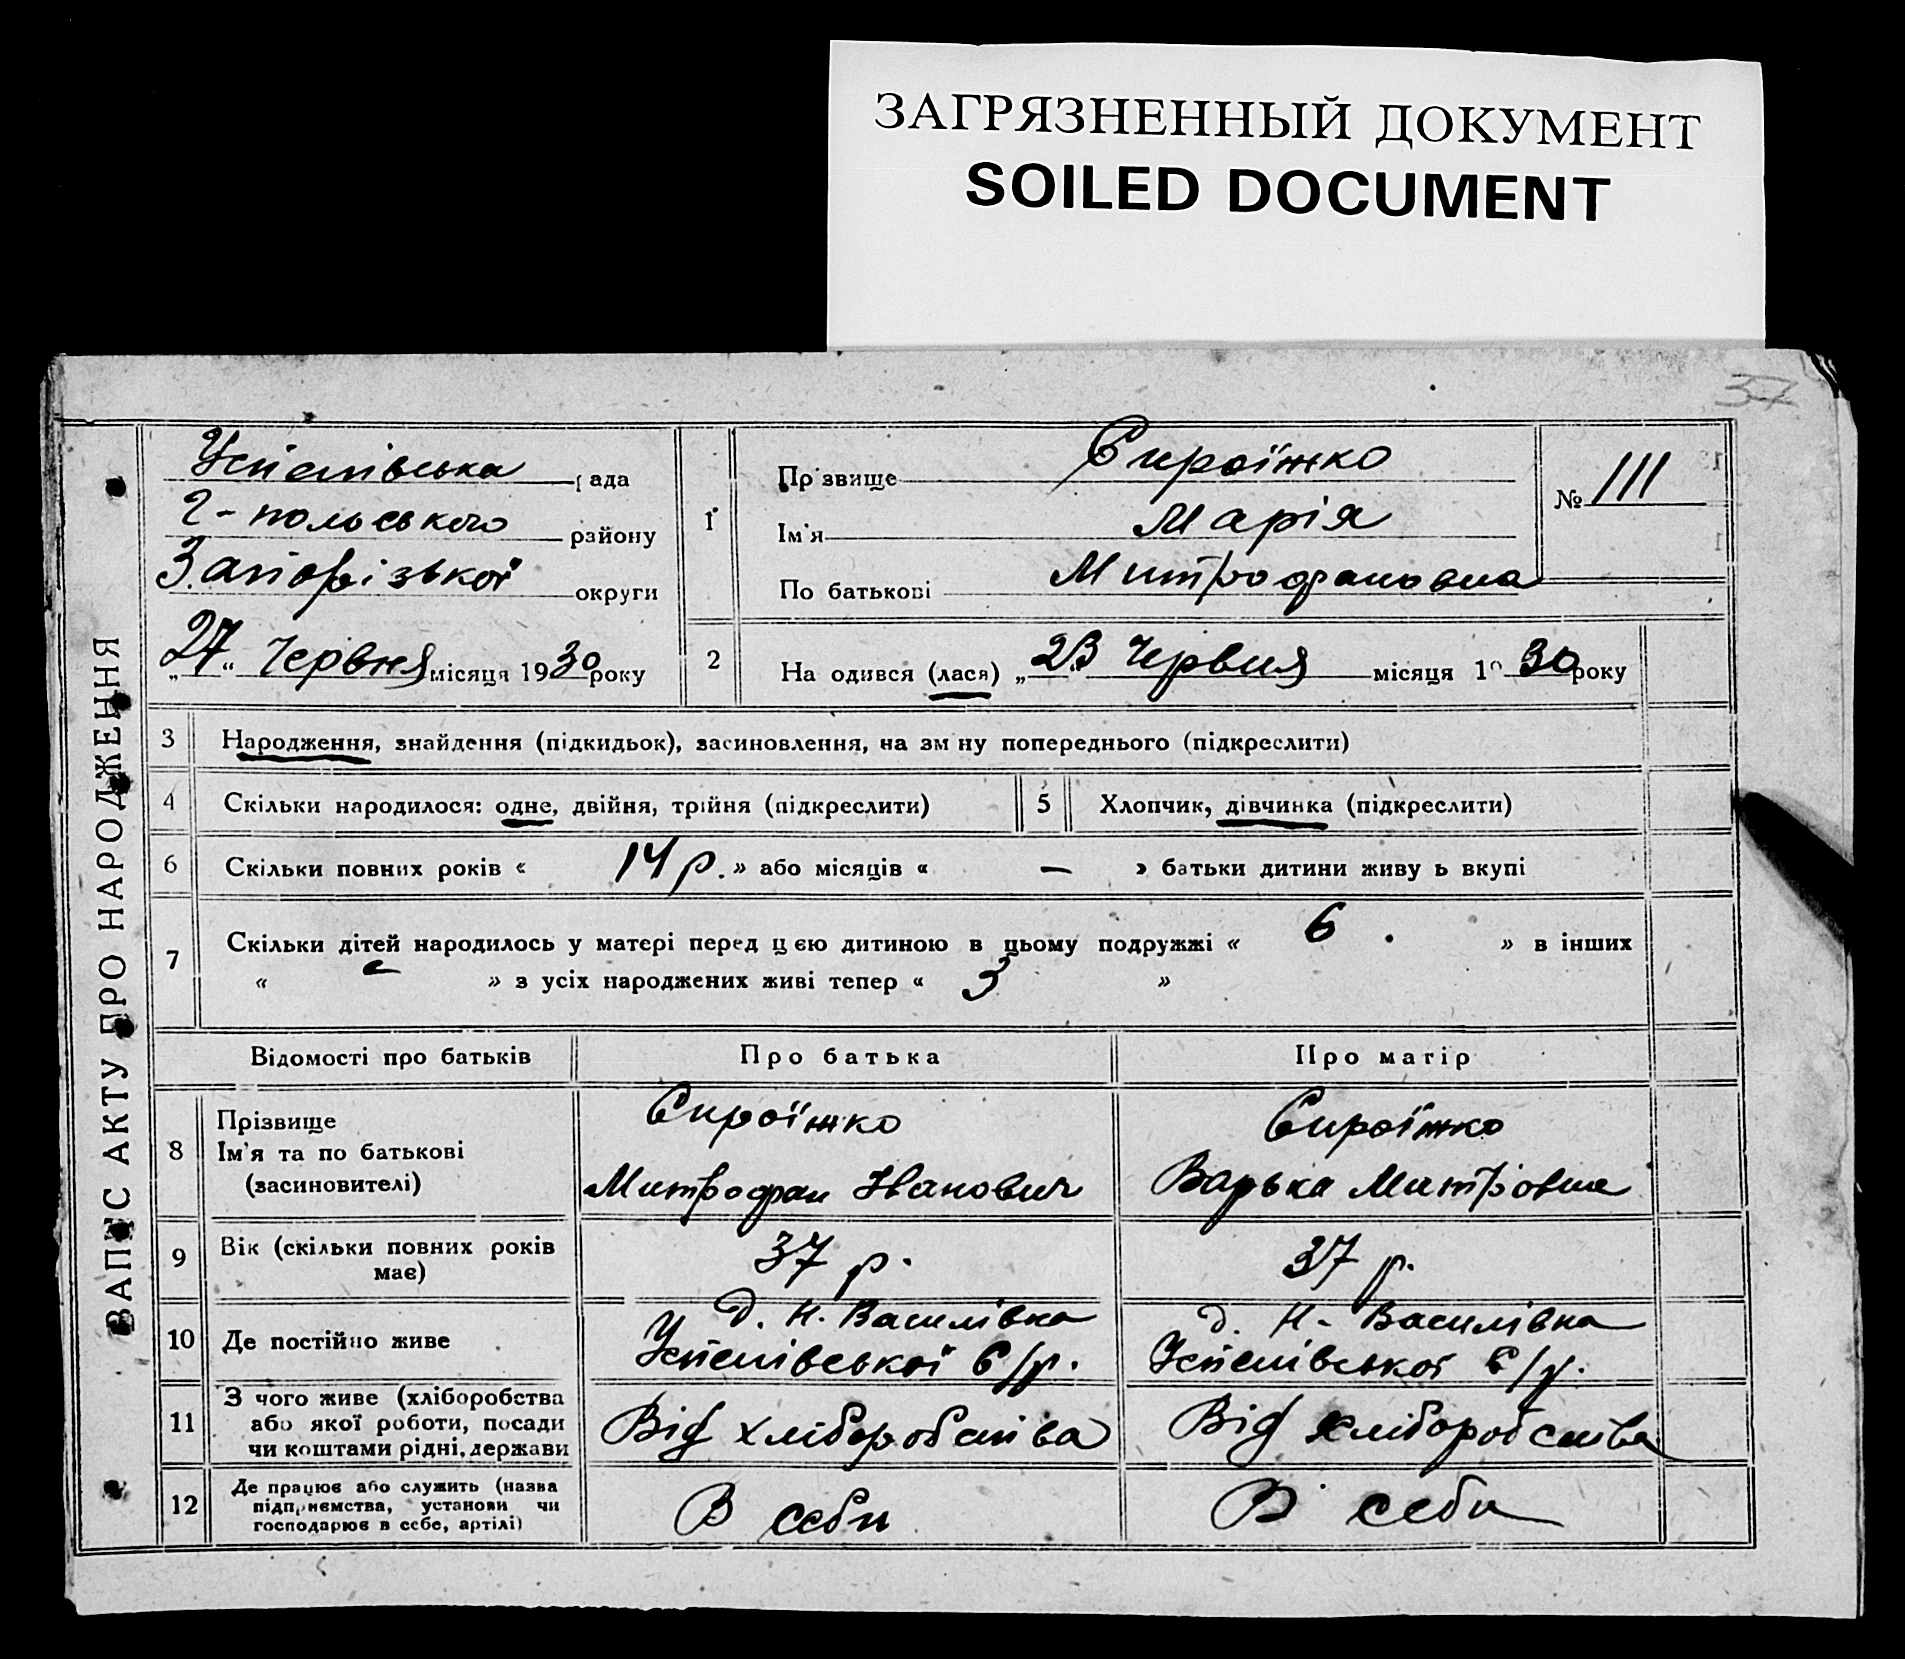 ЗАГРЯЗНЕННЫЙ ДОКУМЕНТ
SOILED DOCUMENT
37
ЗАПИС АКТУ ПРО НАРОДЖЕННЯ
Успенівська рада
Г-польського району
Запорізької округи
„27“ Червня місяця 1930 року
1
Прізвище Сироїжко
Ім'я Марія
По батькові Митрофановна
№ 111
2
На одився (лася) „23 Червня місяця 19 30 року
3 Народження, знайдення (підкидьок), засиновлення, на зм ну попереднього (підкреслити)
4 Скільки народилося: одне, двійня, трійня (підкреслити)
5 Хлопчик, дівчинка (підкреслити)
6 Скільки повних років « 14 р. » або місяців « — » батьки дитини живу ь вкупі
7 Скільки дітей народилось у матері перед цею дитиною в цьому подружжі « 6 . » в інших
« » з усіх народжених живі тепер « 3 »
Відомості про батьків
Про батька
Про матір
8 Прізвище
Ім'я та по батькові
(засиновителі)
Сироїжко
Митрофан Іванович
Сироїжко
Варька Митровна
9 Вік (скільки повних років
має)
37 р.
37 р.
10 Де постійно живе
д. Н. Василівка
Успенівської С/р.
д. Н. Василівка
Успенівської С/р.
11 З чого живе (хліборобства
або якої роботи, посади
чи коштами рідні, держави
Від хліборобства
Від хліборобства
12 Де працює або служить (назва
підприємства, установи чи
господарює в себе, артілі)
В себи
В себи